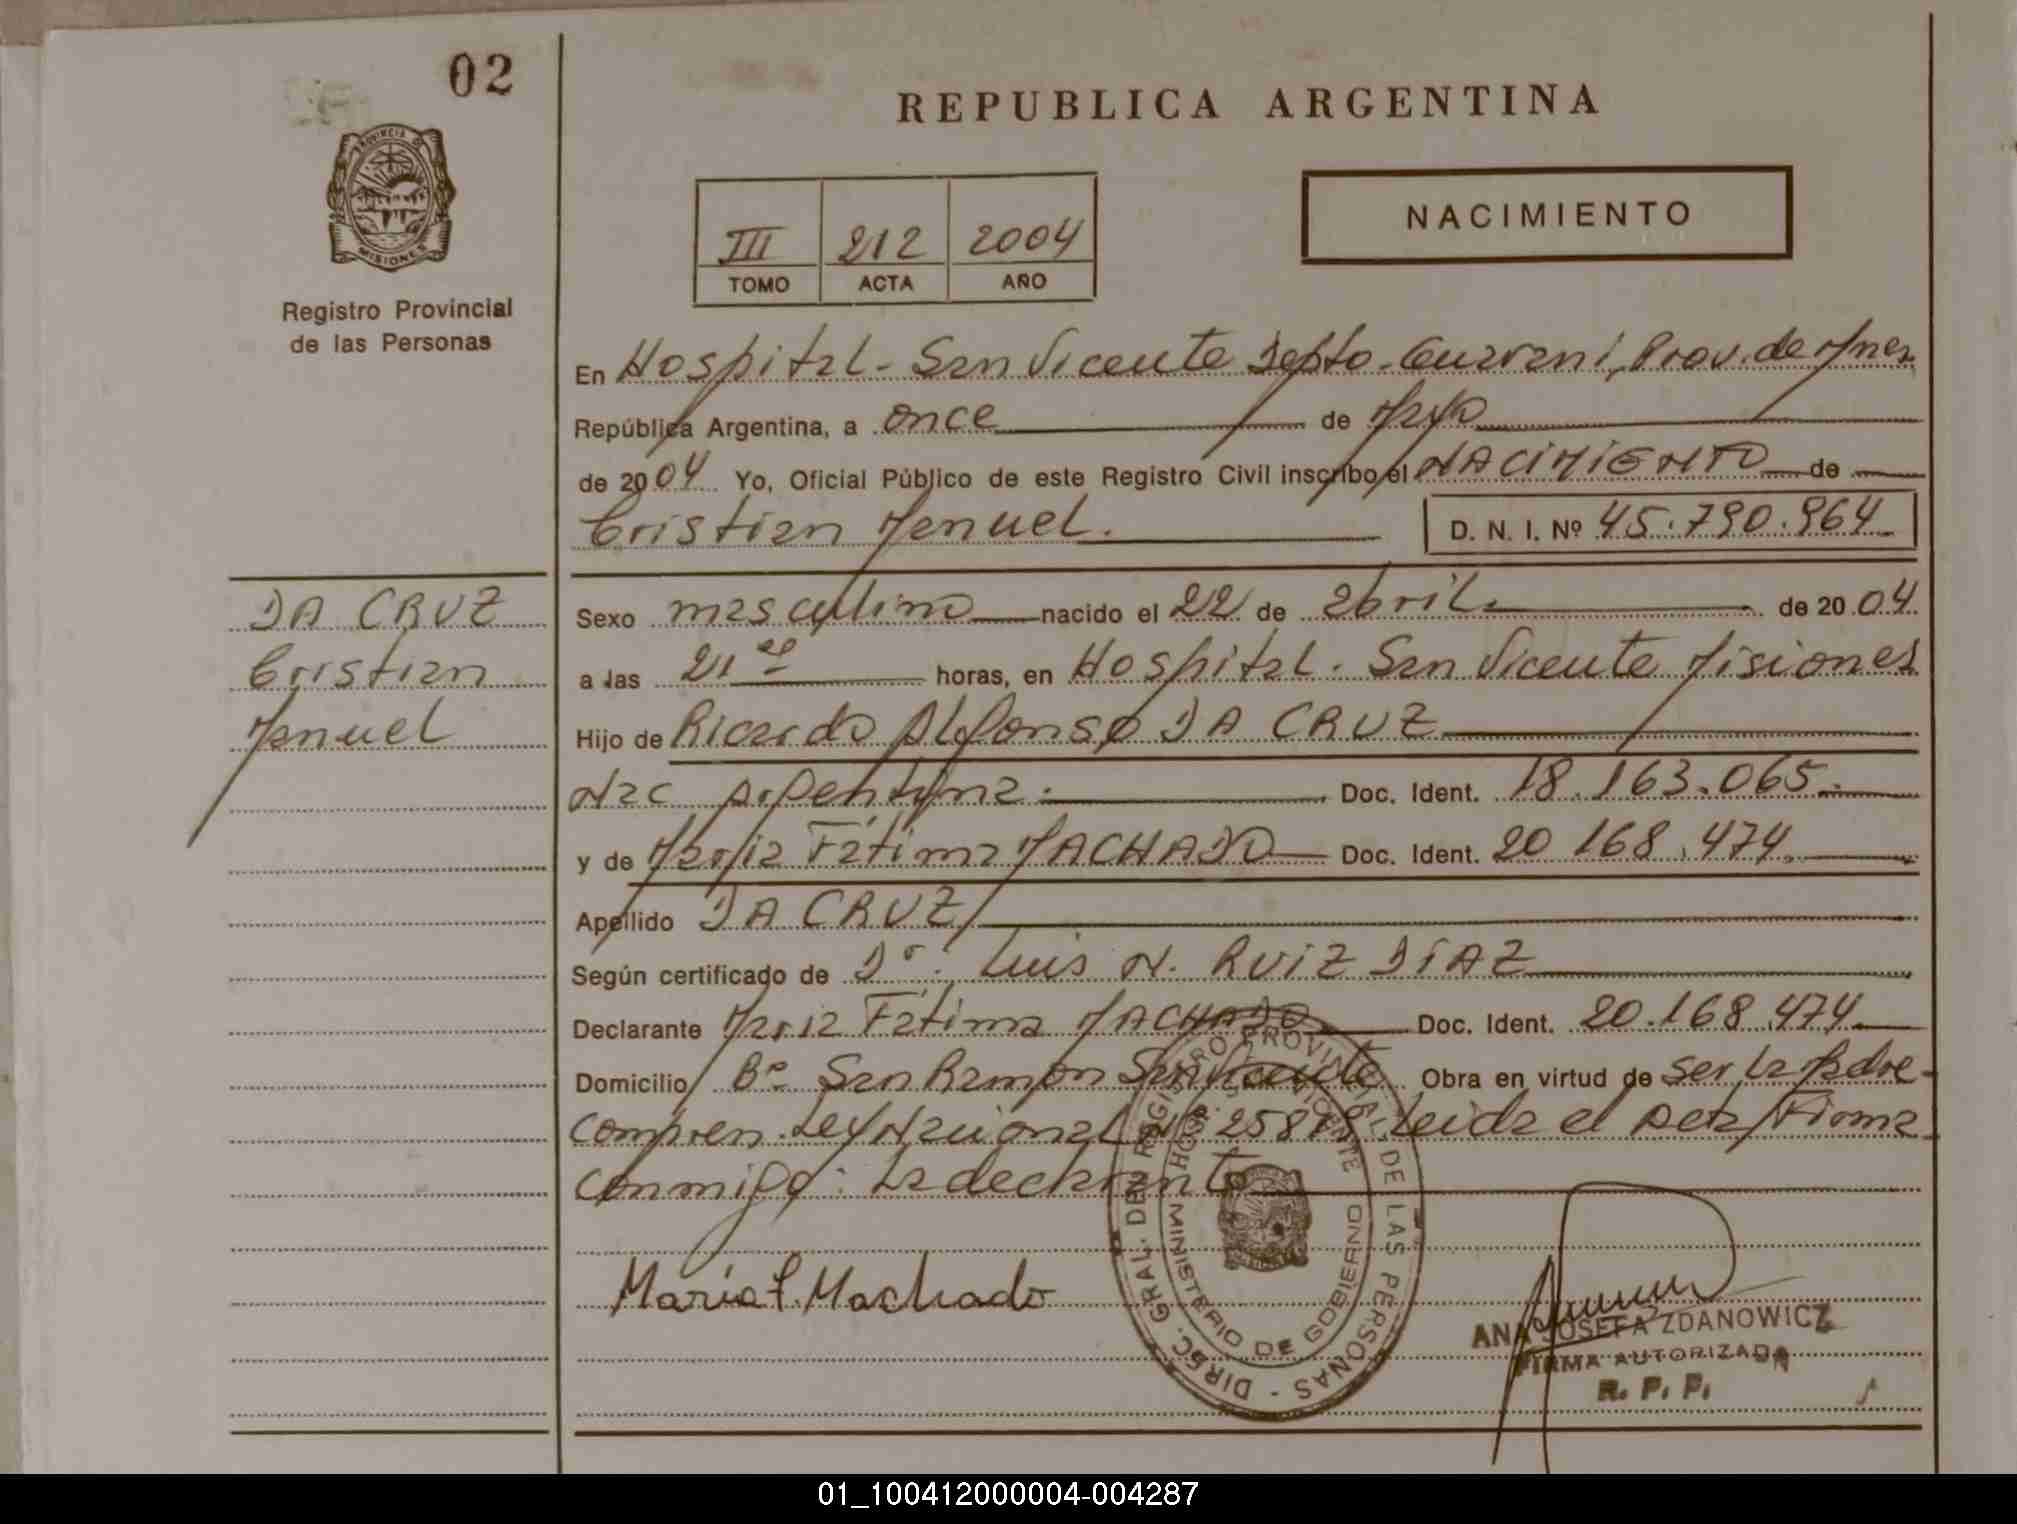 02
PROVINCIA DE
MISIONES
Registro Provincial
de las Personas
REPUBLICA ARGENTINA
III 212 2004
TOMO ACTA AÑO
NACIMIENTO
En Hospital - San Vicente Depto. Guarani, Prov. de Mnes.
República Argentina, a once de Mayo
de 2004 Yo, Oficial Público de este Registro Civil inscribo el NACIMIENTO de
Cristian Manuel.
D. N. I. Nº 45.790.964
DA CRUZ
Cristian
Manuel
Sexo masculino nacido el 22 de abril de 2004.
a las 21 horas, en Hospital. San Vicente Misiones
Hijo de Ricardo Alfonso DA CRUZ
Nac Argentina. Doc. Ident. 18.163.065.
y de Maria Fátima MACHADO Doc. Ident. 20 168.474.
Apellido DA CRUZ
Según certificado de Dr. Luis N. RUIZ DIAZ
Declarante Maria Fátima MACHADO Doc. Ident. 20.168.474
Domicilio Bº San Ramon San Vicente Obra en virtud de ser la Madre-
Compren. Ley Nacional Nº Leida el Acta Firma
Conmigo: La declarante
María F. Machado
DIREC. GRAL. DEL REGISTRO PROVINCIAL DE LAS PERSONAS -
MINISTERIO DE GOBIERNO
ANA JOSEFA ZDANOWICZ
FIRMA AUTORIZADA
R. P. P.
01_100412000004-004287